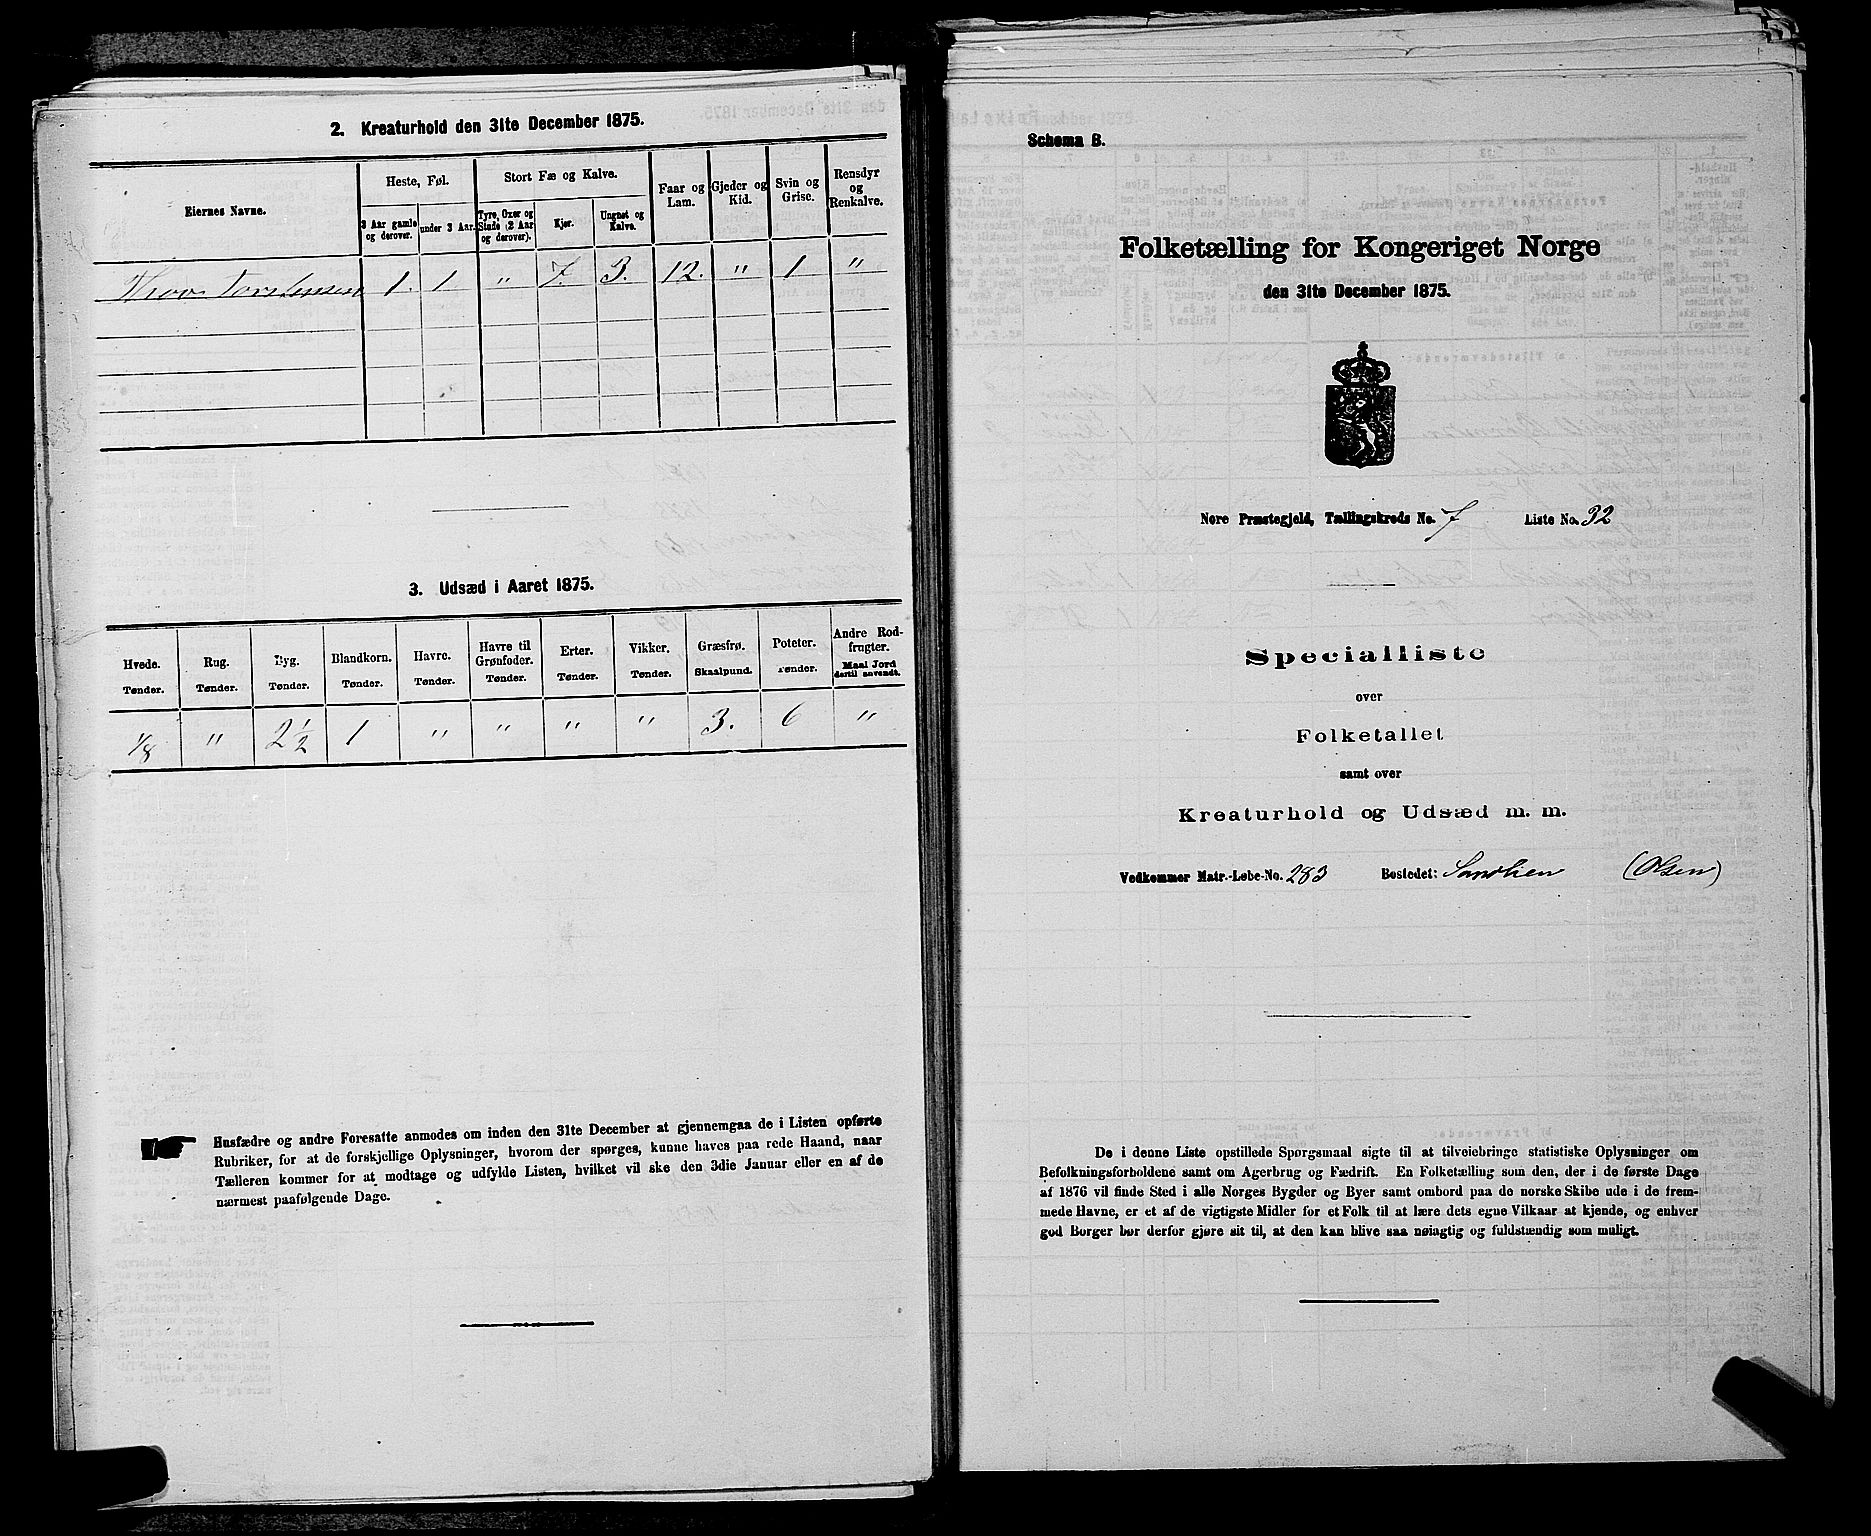 2. Kreaturhold den 31te December 1875.
Eiernes Navne.
Heste, Føl.
Stort Fæ og Kalve.
Faar og Lam.
Gjeder og Kid.
Svin og Grise.
Rensdyr og Renkalve.
3 Aar gamle og derover.
under 3 Aar.
Tyre, Oxer og Stude (2 Aar og derover).
Kjør.
Ungnøt og Kalve.
1. 1 " 7. 3. 12. " 1 "
3. Udsæd i Aaret 1875.
Hvede. Rug. Byg. Blandkorn. Havre. Havre til Grønfoder. Erter. Vikker. Græsfrø. Poteter. Andre Rodfrugter.
Tønder. Tønder. Tønder. Tønder. Tønder. Tønder. Tønder. Tønder. Skaalpund. Tønder. Maal Jord dertil anvendt.
1/8 " 2 1/2 1 " " " " 3. 6 "
Husfædre og andre Foresatte anmodes om inden den 31te December at gjennemgaa de i Listen opførte
Rubriker, for at de forskjellige Oplysninger, hvorom der spørges, kunne haves paa rede Haand, naar
Tælleren kommer for at modtage og udfylde Listen, hvilket vil ske den 3die Januar eller en af de
nærmest paafølgende Dage.
Schema B.
Folketælling for Kongeriget Norge
den 31te December 1875.
Nore Præstegjeld, Tællingskreds No. 7 Liste No. 32
Specialliste
over
Folketallet
samt over
Kreaturhold og Udsæd m. m.
Vedkommer Matr.-Løbe-No. 283 Bostedet: (Olsen)
De i denne Liste opstillede Spørgsmaal sigte til at tilveiebringe statistiske Oplysninger om
Befolkningsforholdene samt om Agerbrug og Fædrift. En Folketælling som den, der i de første Dage
af 1876 vil finde Sted i alle Norges Bygder og Byer samt ombord paa de norske Skibe ude i de frem-
mede Havne, er et af de vigtigste Midler for et Folk til at lære dets egne Vilkaar at kjende, og enhver
god Borger bør derfor gjøre sit til, at den kan blive saa nøiagtig og fuldstændig som muligt.